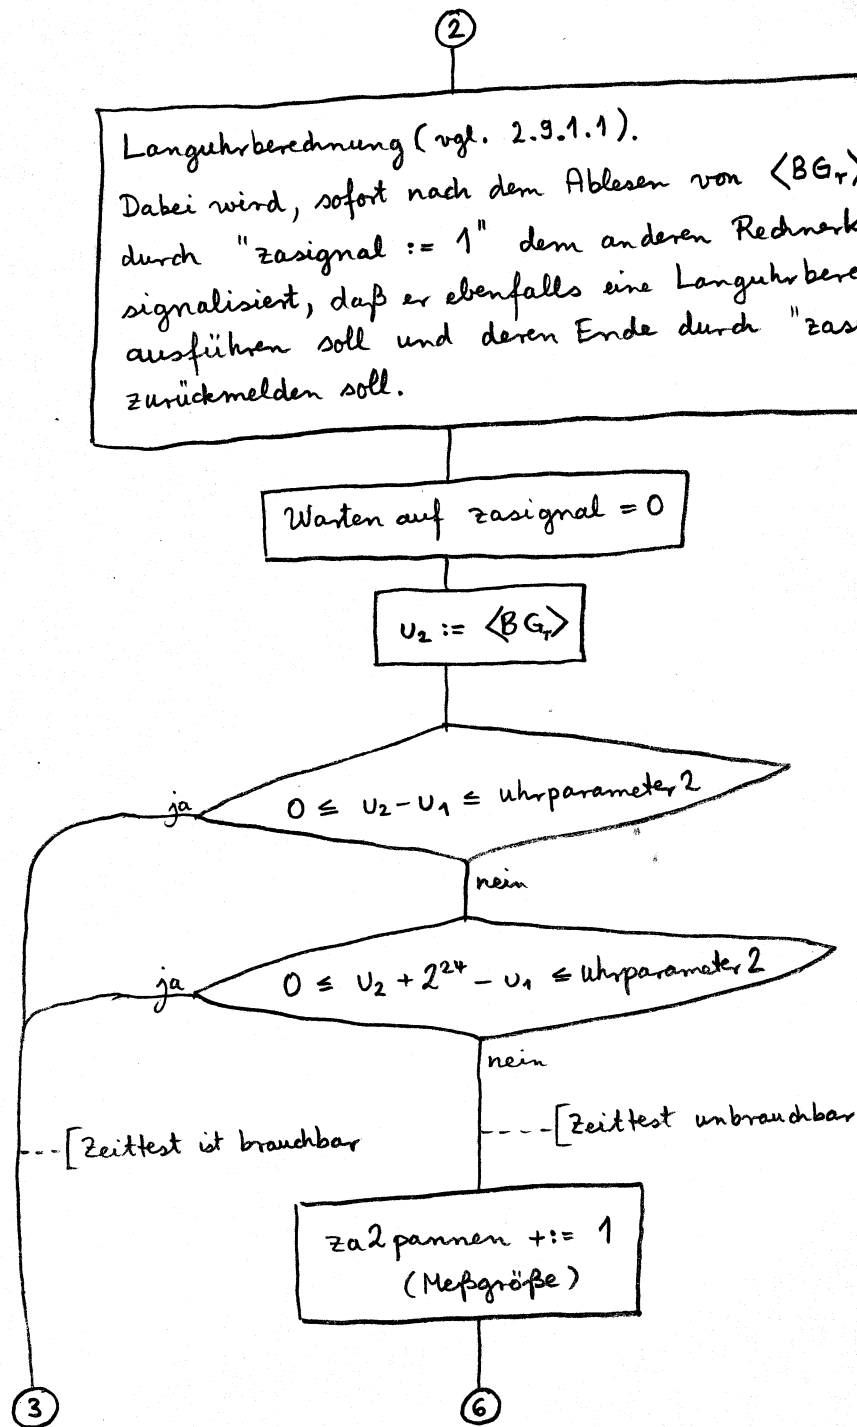 2
Languhrberechnung (vgl. 2.9.1.1).
Dabei wird, sofort nach dem Ablesen von ⟨BG_T⟩
durch "zasignal := 1" dem anderen Rechnerk
signalisiert, daß er ebenfalls eine Languhrbere
ausführen soll und deren Ende durch "zas
zurückmelden soll.
Warten auf zasignal = 0
U₂ := ⟨BG_T⟩
ja
0 ≤ U₂ - U₁ ≤ uhrparameter 2
nein
ja
0 ≤ U₂ + 2²⁴ - U₁ ≤ uhrparameter 2
nein
[Zeittest ist brauchbar
[Zeittest unbrauchbar
za2pannen +:= 1
(Meßgröße)
3
6